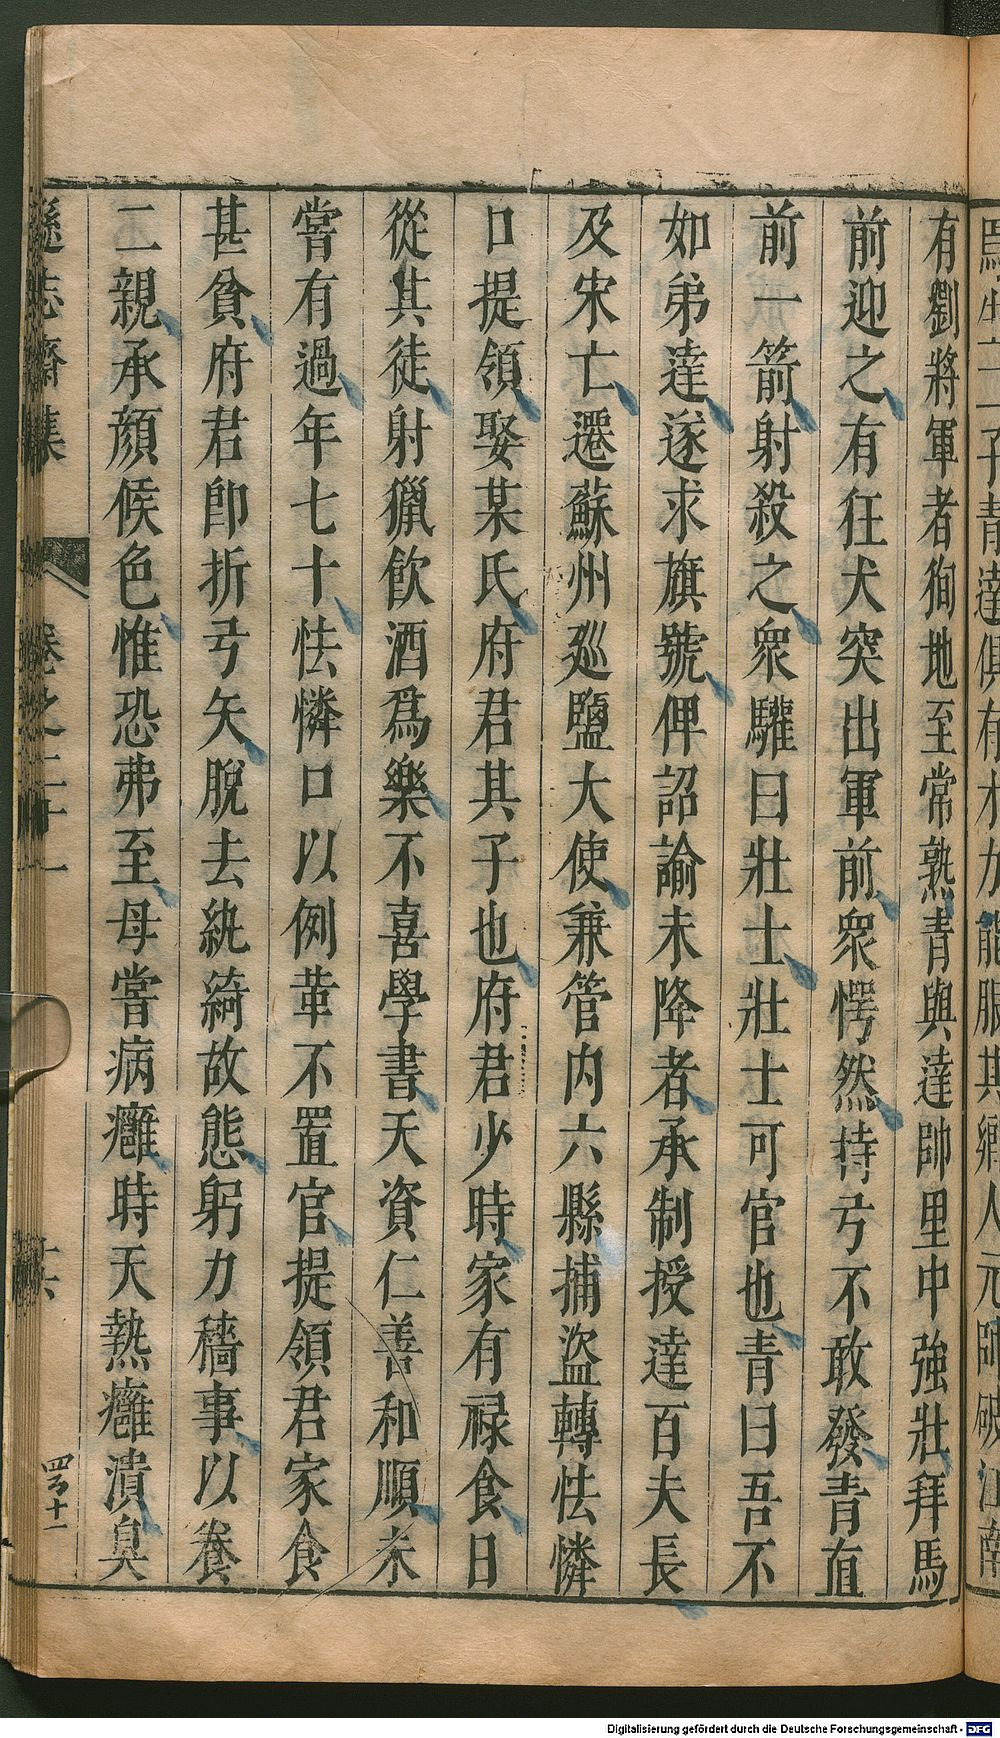 有劉將軍者徇地至常熟青與達帥里中強壯拜馬
前迎之有狂犬突出軍前衆愕然持弓不敢發青直
前一箭射殺之衆驩曰壯士壯士可官也青曰吾不
如弟達遂求旗號俾詔諭未降者承制授達百夫長
及宋亡遷蘇州廵鹽大使兼管内六縣捕盜轉怯憐
口提領娶某氏府君其子也府君少時家有禄食日
從其徒射獵飲酒爲樂不喜學書天資仁善和順未
嘗有過年七十怯憐口以例革不置官提領君家食
甚貧府君卽折弓矢脫去紈綺故態躬力穡事以養
二親承顔候色惟恐弗至母嘗病癰時天熱癰潰臭
遜志齋集
卷之二十二
Digitalisierung gefördert durch die Deutsche Forschungsgemeinschaft - DFG